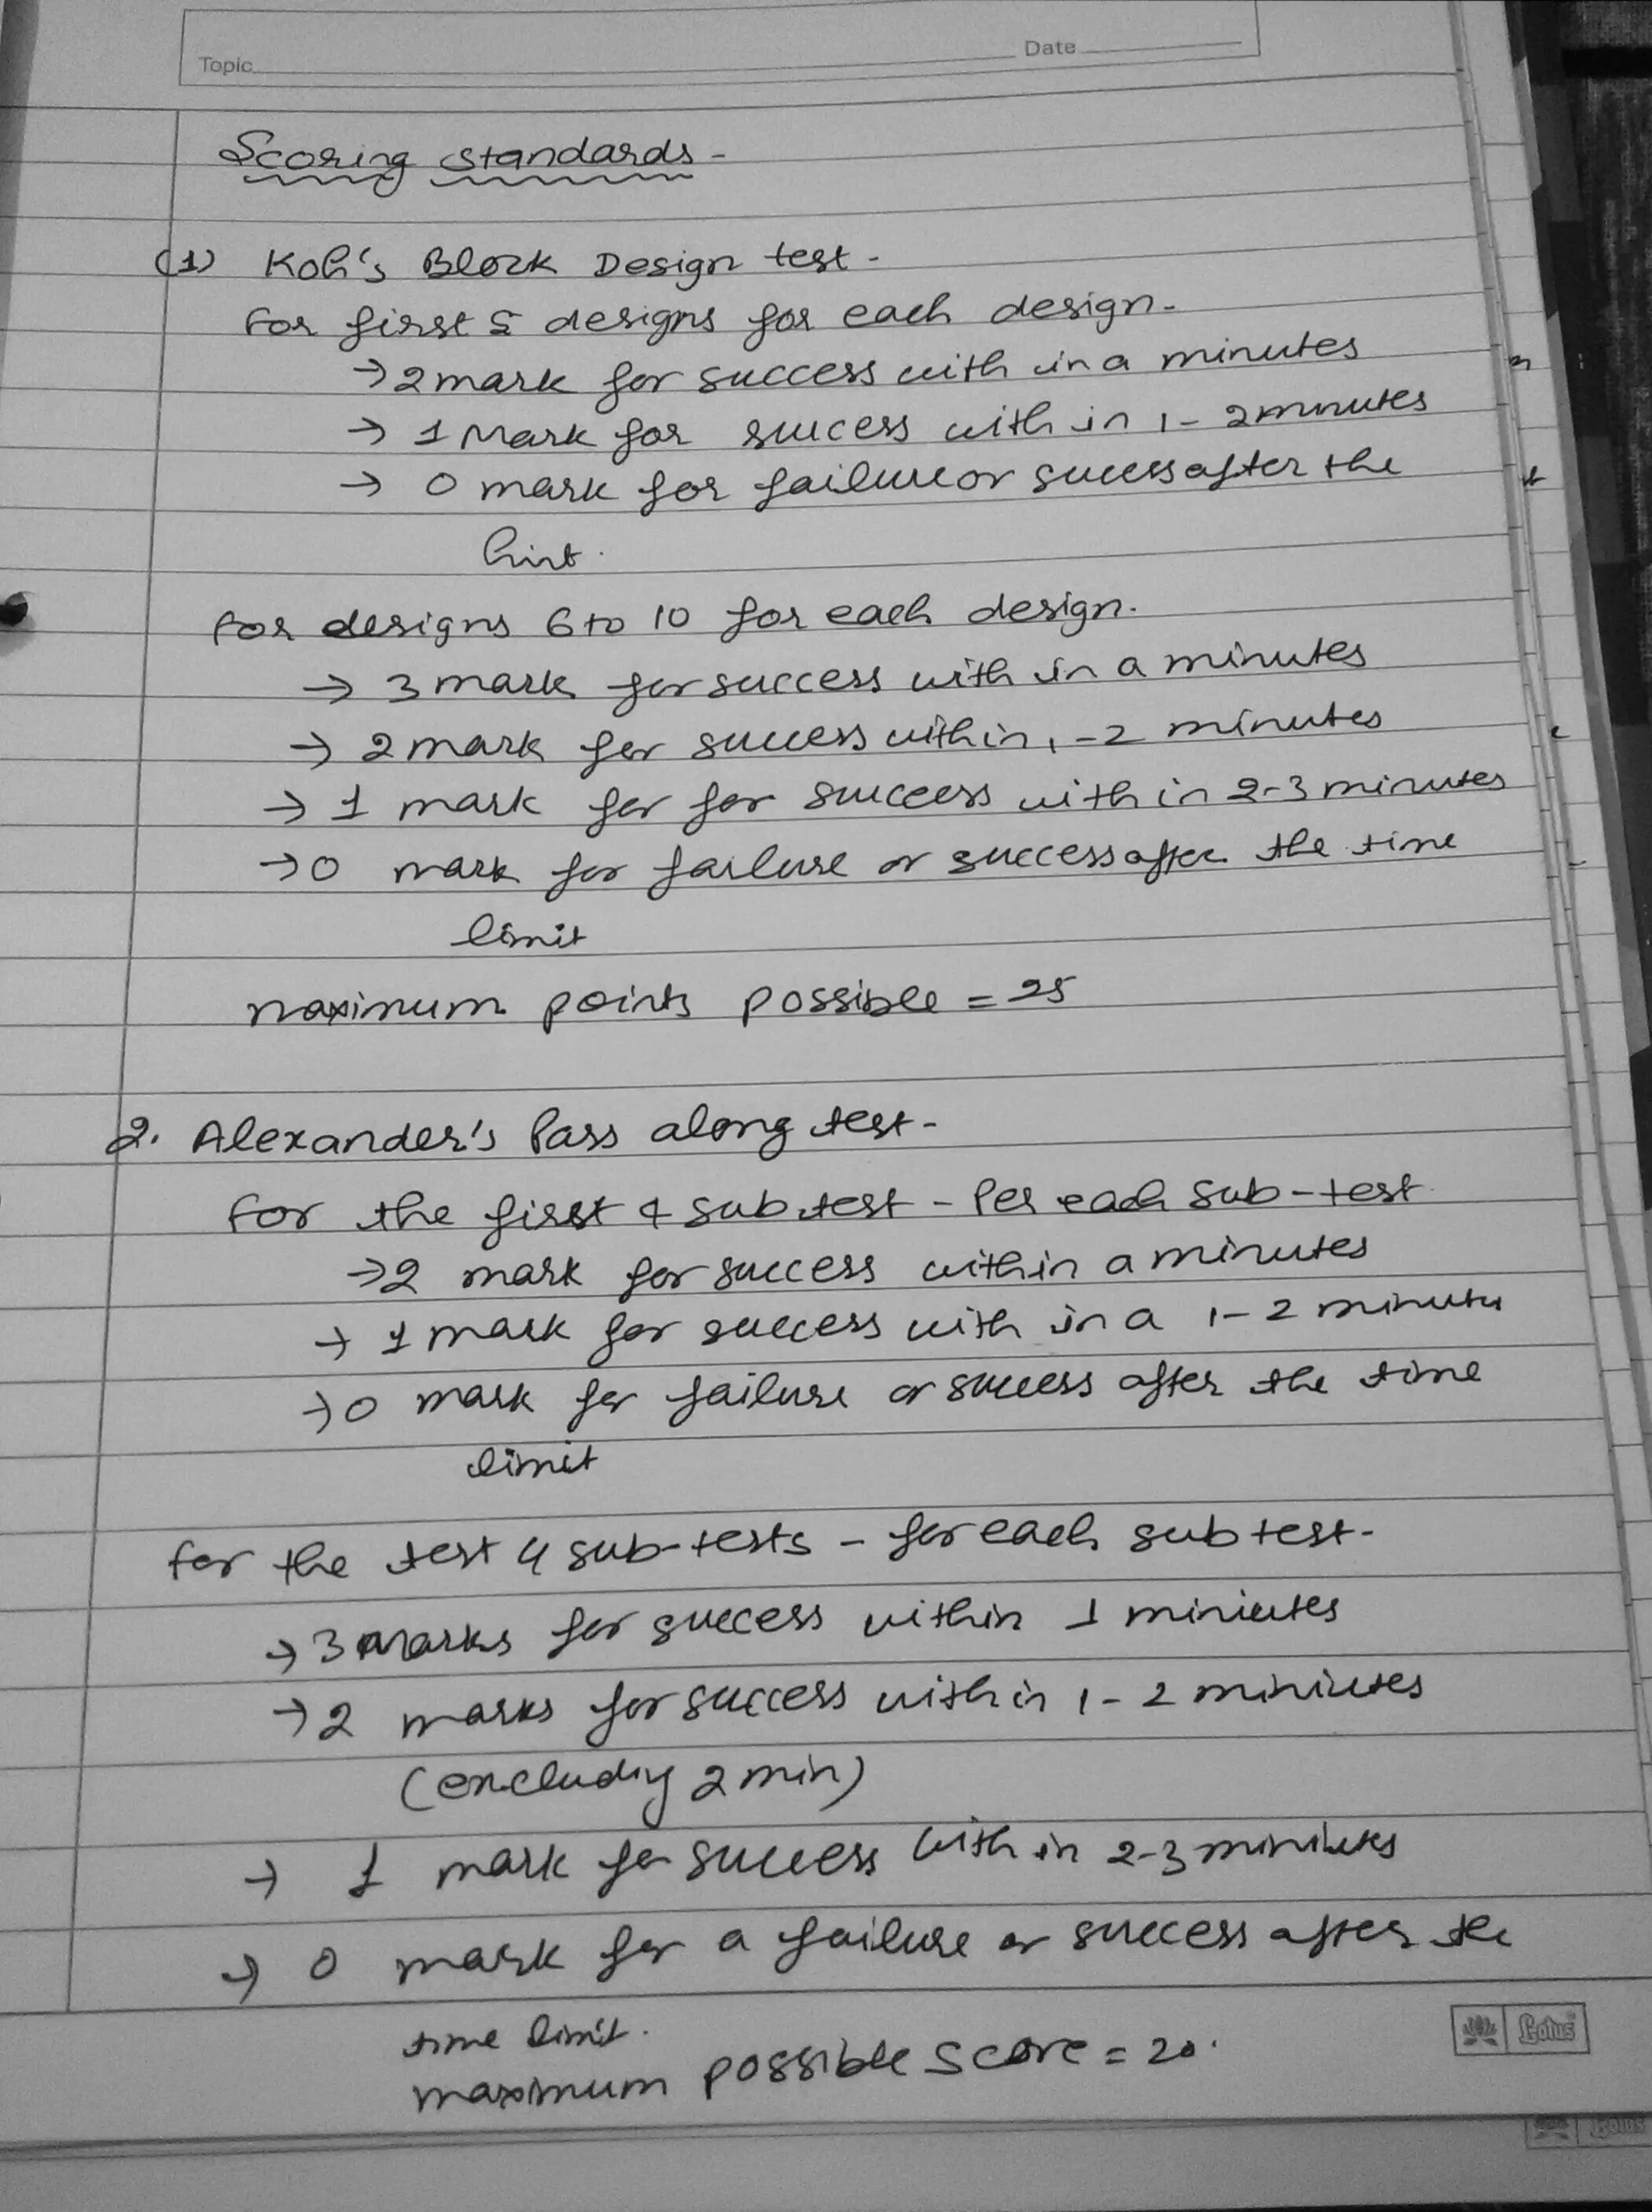 Topic Date
Scoring standards -
(1) Koh's Block Design test -
For first 5 designs for each design -
→ 2 mark for success with in a minutes
→ 1 Mark for success with in 1 - 2 minutes
→ 0 mark for failure or success after the
limit.
For designs 6 to 10 for each design.
→ 3 mark for success with in a minutes
→ 2 mark for success within 1 - 2 minutes
→ 1 mark for for success with in 2-3 minutes
→ 0 mark for failure or success after the time
limit
maximum points possible = 25
2. Alexander's Pass along test -
For the first 4 sub test - Per each sub-test
→ 2 mark for success within a minutes
→ 1 mark for success with in a 1 - 2 minutes
→ 0 mark for failure or success after the time
limit
for the test 4 sub-tests - for each sub test -
→ 3 marks for success within 1 miniutes
→ 2 marks for success within 1 - 2 miniutes
(excluding 2 min)
→ 1 mark for success with in 2-3 miniutes
→ 0 mark for a failure or success after the
time limit.
maximum possible score = 20.
Lotus
Lotus